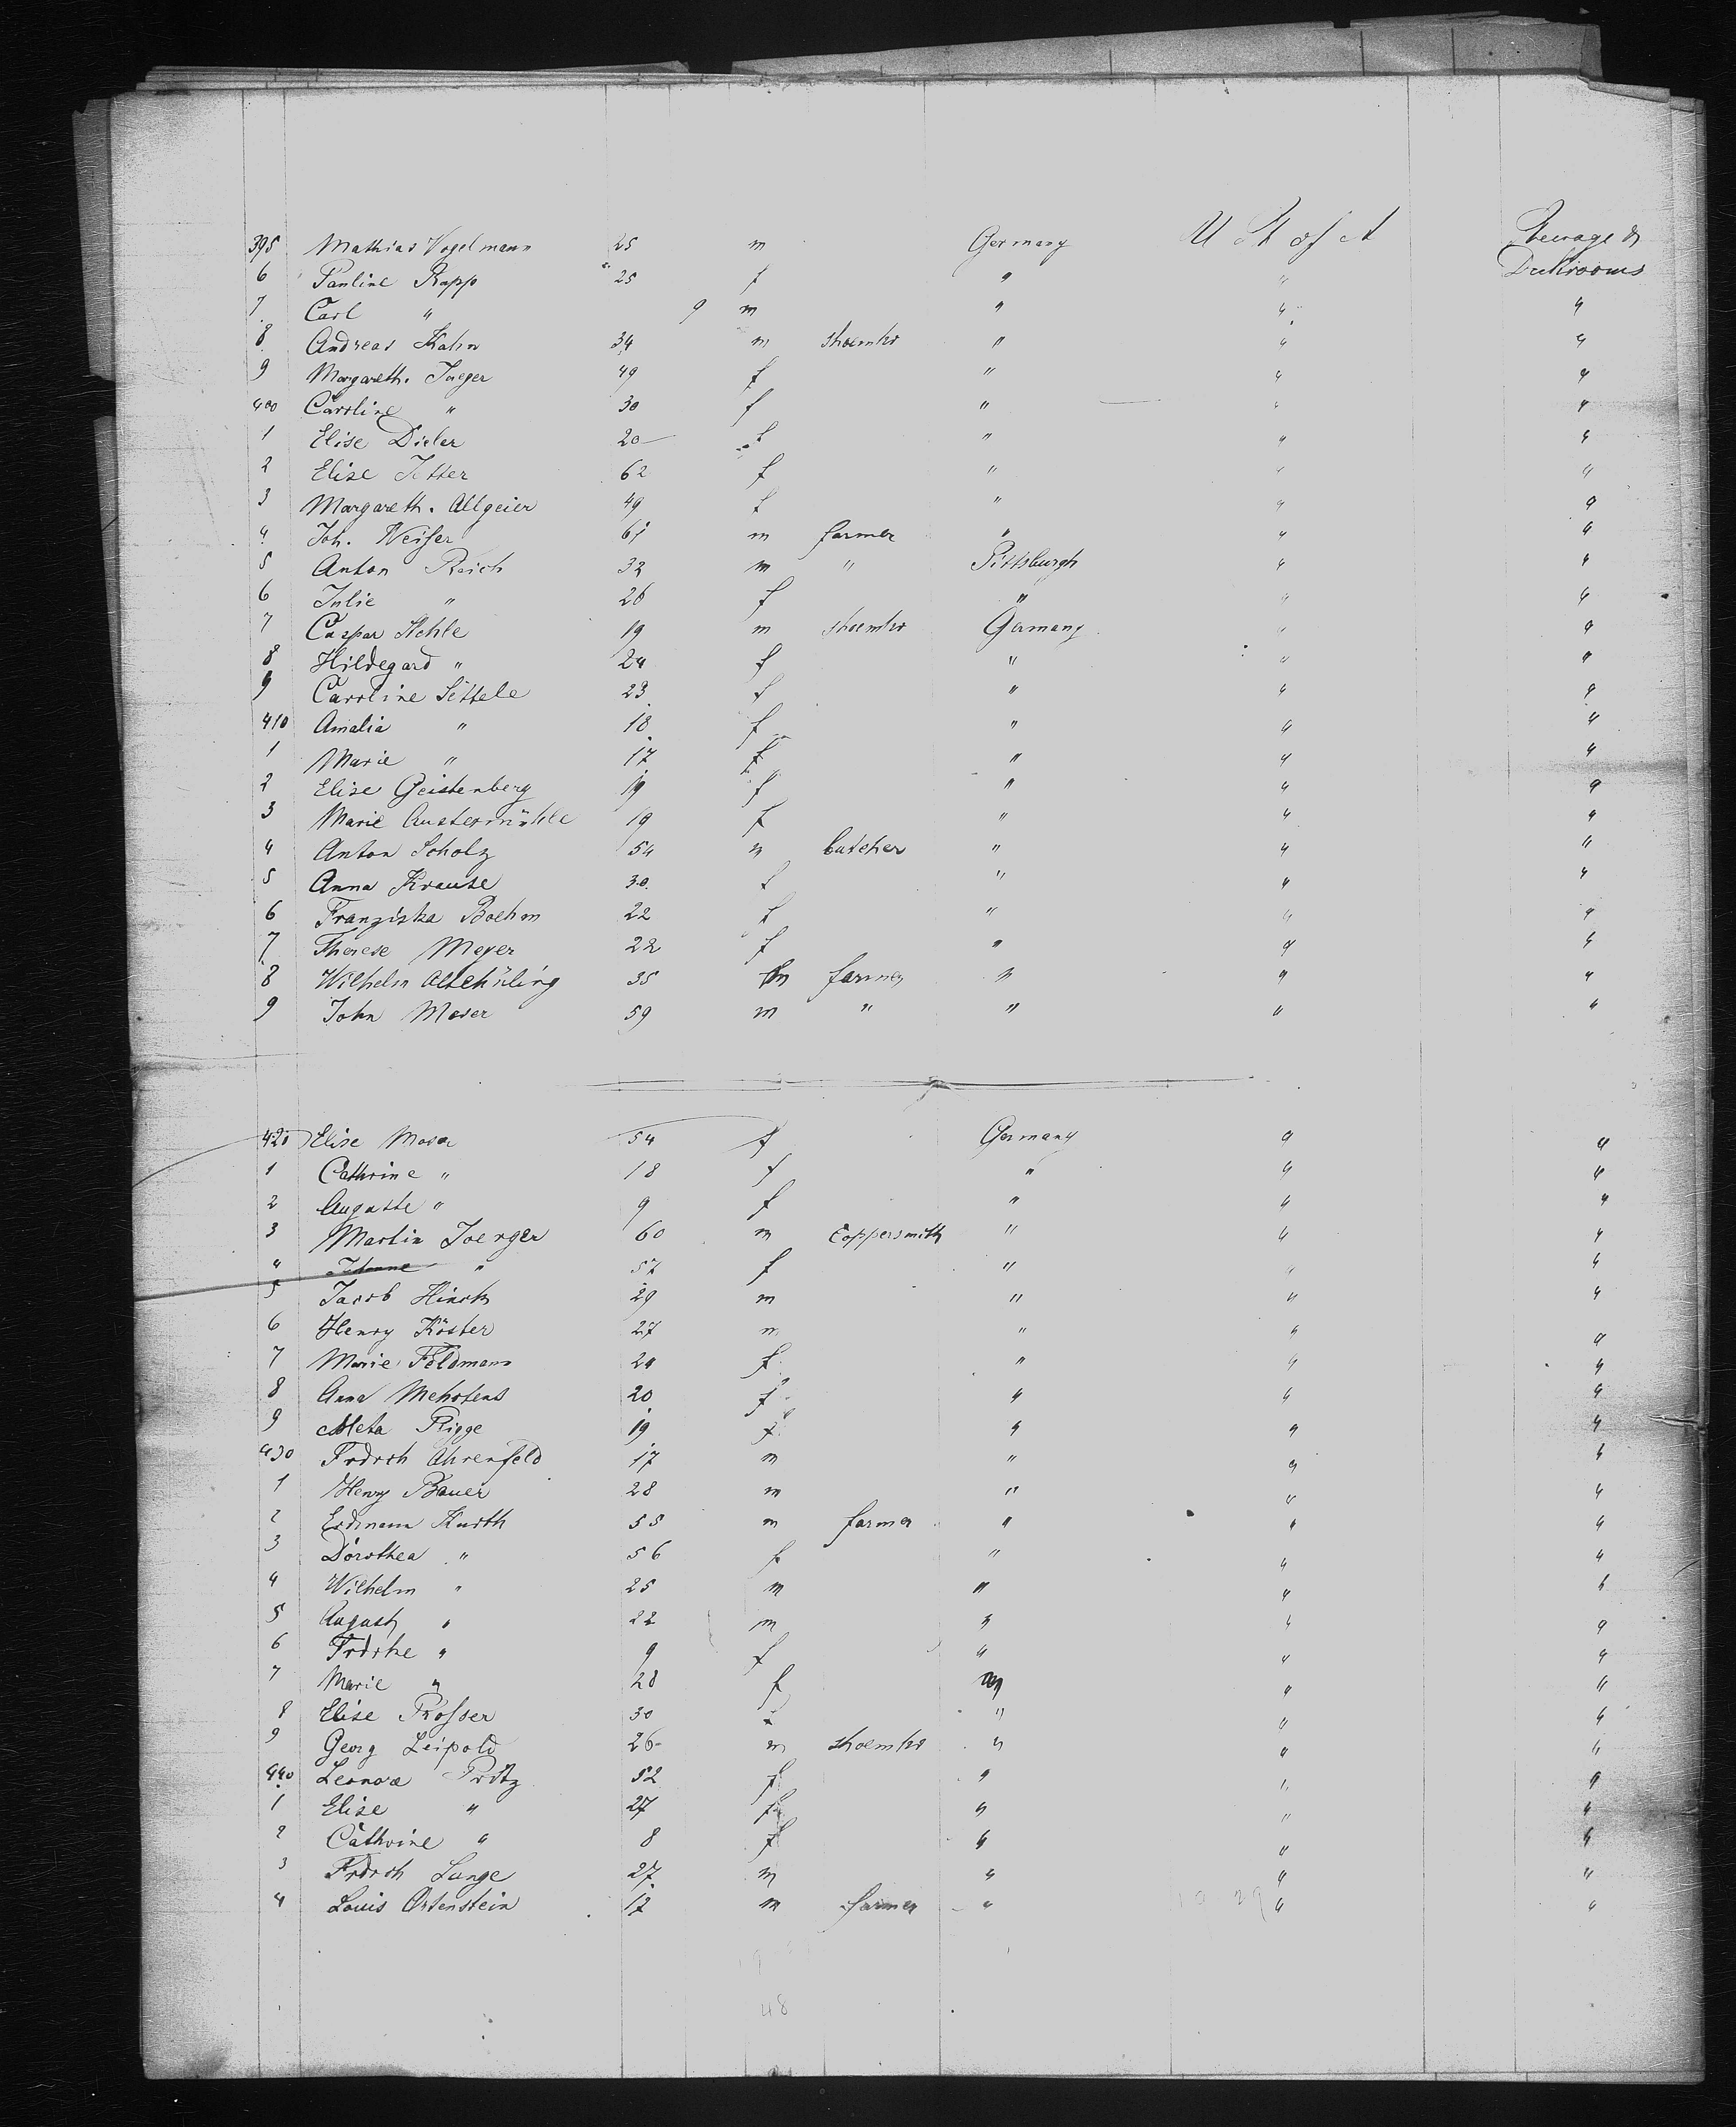 395 Mathias Vogelmann 25 m Germany U St of A Steerage &
6 Pauline Rapp 25 f " " Deckrooms
7 Carl " 9 m " " "
8 Andreas Hahn 34 m shoemkr " " "
9 Margareth. Jaeger 49 f " " "
400 Caroline " 30 f " " "
1 Elise Dieler 20 f " " "
2 Elise Jetter 62 f " " "
3 Margareth. Allgeier 49 f " " "
4 Joh. Weiser 61 m farmer " " "
5 Anton Reich 32 m " Pittsburgh " "
6 Julie " 26 f " " "
7 Caspar Stehle 19 m shoemkr Germany " "
8 Hildegard " 24 f " " "
9 Caroline Settele 23 f " " "
410 Amalia " 18 f " " "
1 Marie " 17 f " " "
2 Elise Geistenberg 19 f " " "
3 Marie Austermühle 19 f " " "
4 Anton Scholz 54 m butcher " " "
5 Anna Krause 30 f " " "
6 Franziska Boehm 22 f " " "
7 Therese Meyer 22 f " " "
8 Wilhelm 35 m farmer " " "
9 John Moser 59 m " " " "
420 Elise Moser 54 f Germany " "
1 Cathrine " 18 f " " "
2 Auguste " 9 f " " "
3 Martin Joerger 60 m Coppersmith " " "
4 " 57 f " " "
5 Jacob Hinck 29 m " " "
6 Henry Köster 27 m " " "
7 Marie Feldmann 24 f " " "
8 Anna Mehrtens 20 f " " "
9 Meta Rigge 19 f " " "
430 Frdrch Ahrenfeld 17 m " " "
1 Henry Bauer 28 m " " "
2 Erdmann Kurth 55 m farmer " " "
3 Dorothea " 56 f " " "
4 Wilhelm " 25 m " " "
5 August " 22 m " " "
6 Frdrke " 9 f " " "
7 Marie " 28 f " " "
8 Elise Rosser 30 f " " "
9 Georg Leipold 26 m shoemkr " " "
440 Leonore Pritz 52 f " " "
1 Elise " 27 f " " "
2 Cathrine " 8 f " " "
3 Frdrch Lange 27 m " " "
4 Louis Ortenstein 17 m farmer " " "
48